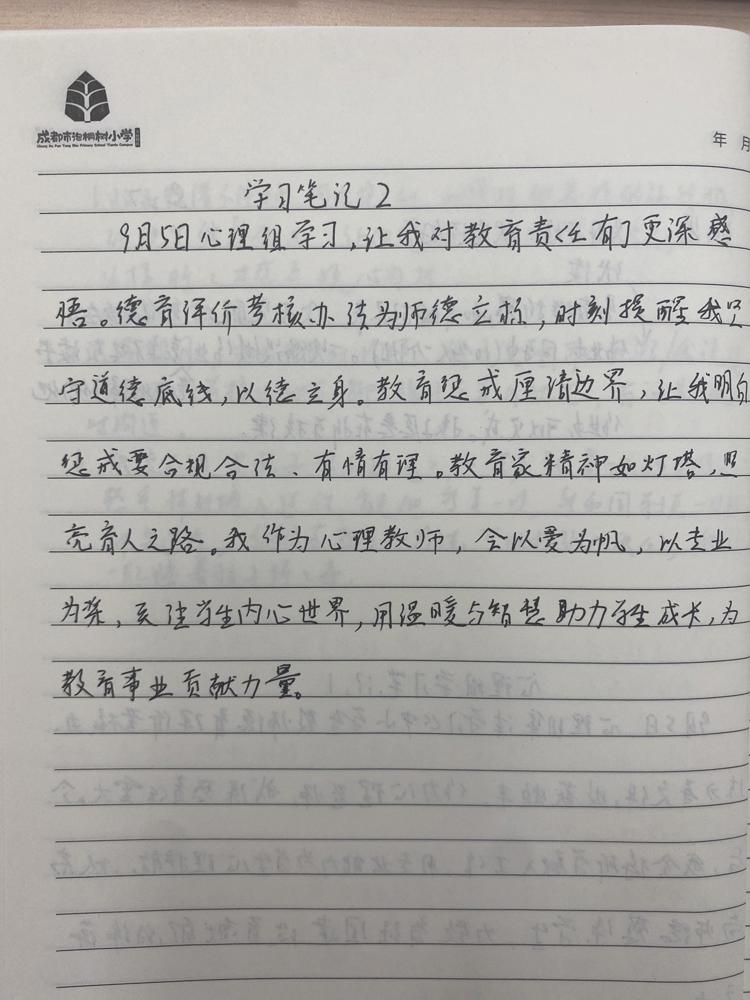 成都市泡桐树小学
年 月
学习笔记2
9月5日心理组学习,让我对教育责任有了更深感
悟。德育评价考核办法为师德立标,时刻提醒我坚
守道德底线,以德立身。教育惩戒厘清边界,让我明白
惩戒要合规合法、有情有理。教育家精神如灯塔,照
亮育人之路。我作为心理教师,会以爱为帆,以专业
为桨,关注学生内心世界,用温暖与智慧助力学生成长,为
教育事业贡献力量。